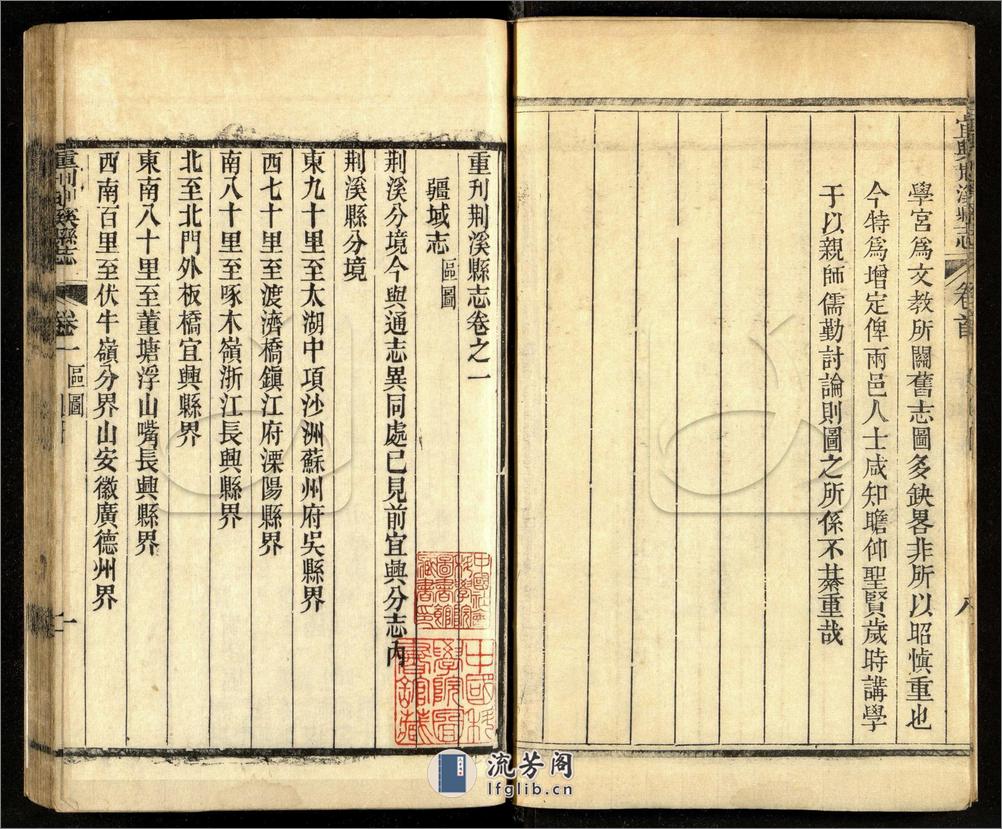 宜興荆溪縣志
卷首
八
學宮爲文教所關舊志圖多缺畧非所以昭慎重也
今特爲增定俾兩邑人士咸知瞻仰聖賢歲時講學
于以親師儒勤討論則圖之所係不綦重哉
重刊荆溪縣志卷之一
疆域志 區圖
荆溪分境今與通志異同處已見前宜興分志內
荆溪縣分境
東九十里至太湖中項沙洲蘇州府吳縣界
西七十里至渡濟橋鎮江府溧陽縣界
南八十里至啄木嶺浙江長興縣界
北至北門外板橋宜興縣界
東南八十里至董塘浮山嘴長興縣界
西南百里至伏牛嶺分界山安徽廣德州界
重刊荆溪縣志
卷一 區圖
一
中國社會科學院圖書館藏書印
中國科學院圖書館藏
流芳阁
lfglib.cn